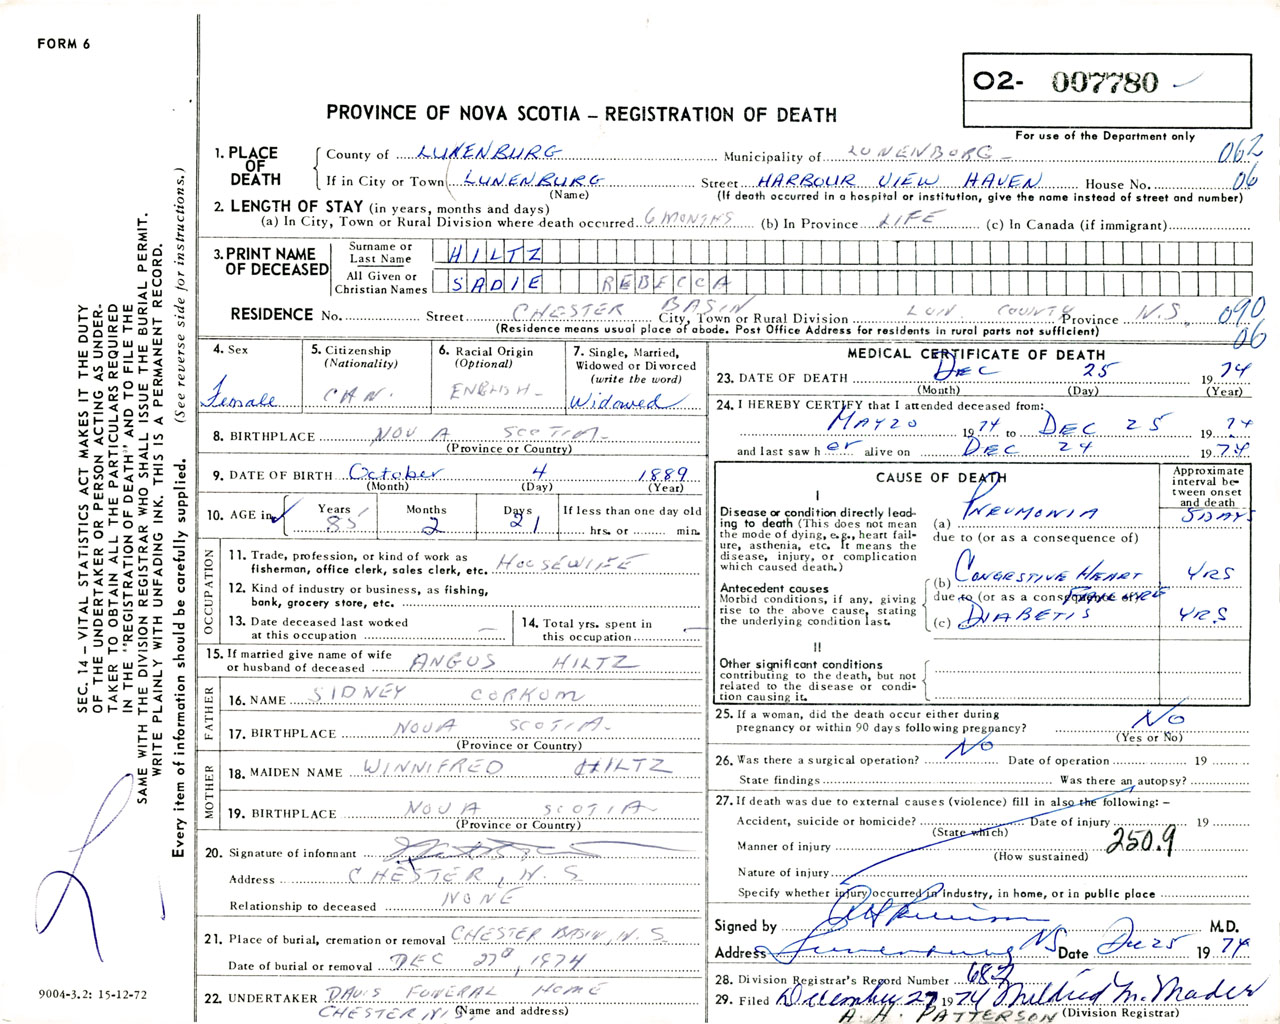 FORM 6
02- 007780
PROVINCE OF NOVA SCOTIA – REGISTRATION OF DEATH
For use of the Department only
1. PLACE OF DEATH
County of LUNENBURG Municipality of LUNENBURG 062
If in City or Town LUNENBURG Street HARBOUR VIEW HAVEN House No. 06
(Name) (If death occurred in a hospital or institution, give the name instead of street and number)
2. LENGTH OF STAY (in years, months and days)
(a) In City, Town or Rural Division where death occurred 6 MONTHS (b) In Province LIFE (c) In Canada (if immigrant)
3. PRINT NAME OF DECEASED
Surname or Last Name HILTZ
All Given or Christian Names SADIE REBECCA
RESIDENCE No. Street CHESTER BASIN City, Town or Rural Division LUN. COUNTY Province N.S. 090
(Residence means usual place of abode. Post Office Address for residents in rural parts not sufficient) 06
4. Sex
Female
5. Citizenship
(Nationality)
CAN.
6. Racial Origin
(Optional)
ENGLISH
7. Single, Married,
Widowed or Divorced
(write the word)
Widowed
8. BIRTHPLACE NOVA SCOTIA
(Province or Country)
9. DATE OF BIRTH October 4 1889
(Month) (Day) (Year)
10. AGE in Years Months Days If less than one day old
85 2 21 hrs. or min.
OCCUPATION
11. Trade, profession, or kind of work as
fisherman, office clerk, sales clerk, etc. HOUSEWIFE
12. Kind of industry or business, as fishing,
bank, grocery store, etc.
13. Date deceased last worked
at this occupation —
14. Total yrs. spent in
this occupation —
15. If married give name of wife
or husband of deceased ANGUS HILTZ
FATHER
16. NAME SIDNEY CORKUM
17. BIRTHPLACE NOVA SCOTIA
(Province or Country)
MOTHER
18. MAIDEN NAME WINNIFRED HILTZ
19. BIRTHPLACE NOVA SCOTIA
(Province or Country)
20. Signature of informant
Address CHESTER, N.S
Relationship to deceased NONE
21. Place of burial, cremation or removal CHESTER BASIN, N.S
Date of burial or removal DEC 27, 1974
22. UNDERTAKER DAVIS FUNERAL HOME
CHESTER, N.S. (Name and address)
MEDICAL CERTIFICATE OF DEATH
23. DATE OF DEATH DEC 25 1974
(Month) (Day) (Year)
24. I HEREBY CERTIFY that I attended deceased from:
MAY 20 1974 to DEC 25 1974
and last saw her alive on DEC 24 1974
CAUSE OF DEATH
Approximate interval between onset and death
I
Disease or condition directly leading to death (This does not mean the mode of dying, e.g., heart failure, asthenia, etc. It means the disease, injury, or complication which caused death.)
(a) PNEUMONIA 5 DAYS
due to (or as a consequence of)
Antecedent causes
Morbid conditions, if any, giving rise to the above cause, stating the underlying condition last.
(b) CONGESTIVE HEART FAILURE YRS
due to (or as a consequence of)
(c) DIABETIS YRS
II
Other significant conditions
contributing to the death, but not
related to the disease or condition causing it.
25. If a woman, did the death occur either during
pregnancy or within 90 days following pregnancy? No
(Yes or No)
26. Was there a surgical operation? No Date of operation 19
State findings Was there an autopsy?
27. If death was due to external causes (violence) fill in also the following: –
Accident, suicide or homicide? Date of injury 19
(State which)
Manner of injury 250.9
(How sustained)
Nature of injury
Specify whether injury occurred in industry, in home, or in public place
Signed by M.D.
Address Lunenburg NS Date Dec 25 1974
28. Division Registrar's Record Number 682
29. Filed December 27 1974 Mildred M. Mader
A. H. PATTERSON (Division Registrar)
SEC. 14 – VITAL STATISTICS ACT MAKES IT THE DUTY
OF THE UNDERTAKER OR PERSON ACTING AS UNDER-
TAKER TO OBTAIN ALL THE PARTICULARS REQUIRED
IN THE "REGISTRATION OF DEATH" AND TO FILE THE
SAME WITH THE DIVISION REGISTRAR WHO SHALL ISSUE THE BURIAL PERMIT.
WRITE PLAINLY WITH UNFADING INK. THIS IS A PERMANENT RECORD.
Every item of information should be carefully supplied. (See reverse side for instructions.)
9004-3.2: 15-12-72